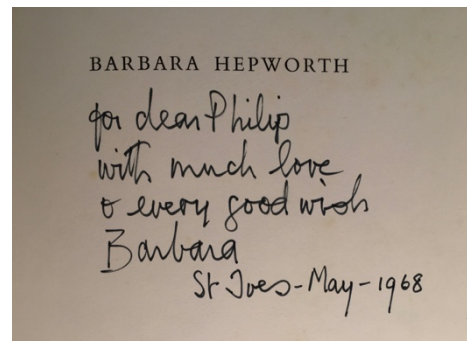 BARBARA HEPWORTH
for dear Philip
with much love
& every good wish
Barbara
St Ives - May - 1968